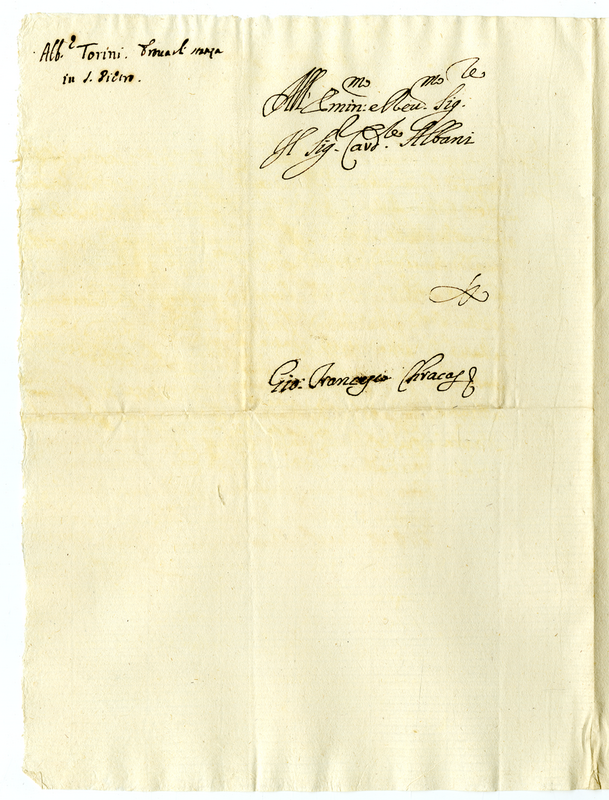 Alb.e Torini.
in S. Pietro.
All' Emin.mo e Reu.mo Sig.re
Il Sig.r Card.le Albani
Gio: Francesco Chracas